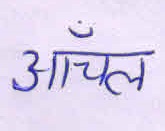 आँचल